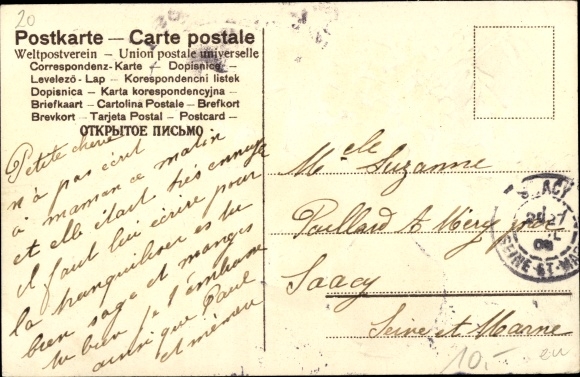 20
Postkarte — Carte postale
Weltpostverein — Union postale universelle
Correspondenz-Karte — Dopisnice —
Levelező-Lap — Korespondencni listek
Dopisnica — Karta korespondencyjna —
Briefkaart — Cartolina Postale — Brefkort
Brevkort — Tarjeta Postal — Postcard —
ОТКРЫТОЕ ПИСЬМО
Petite cherie
n'a pas écrit
à maman ce matin
et elle était très ennuyé
il faut lui écrire pour
la tranquiliser es tu
bien sage et manges
tu bien je t'embrasse
ainsi que Paul
et mémère
Melle Suzanne
Paillard à Méry par
Saacy
Seine et Marne
SAACY
SEINE-ET-MARNE
10,-